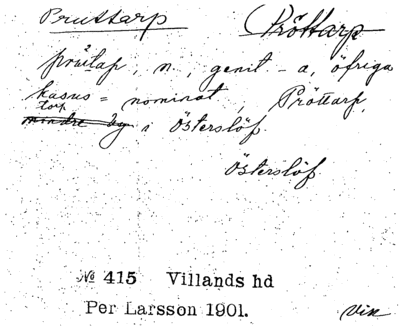 Pruttarp Pröttarp
prùtap, n, genit - a, öfriga
kasus = nominat, Pröttarp,
torp
mindre by i Österslöf.
Österslöf.
№ 415 Villands hd
Per Larsson 1901.